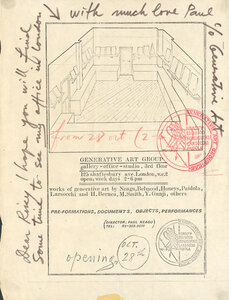 with much love Paul
c/o Generative Art
Dear Roxy I hope you will find
some time to see my office in London
from 28 oct
GENERATIVE ART GROUP
gallery - office - studio, 3rd floor
125 shaftesbury ave. London, w.c.2
open, week days 2-6 pm
works of generative art by Neagu, Belmood, Honeys, Paidola,
Larsocchi and H. Bermea, M. Smith, Y. Oungi, others
PRE-FORMATIONS, DOCUMENTS, OBJECTS, PERFORMANCES
(DIRECTOR, PAUL NEAGU)
opening OCT. 28th